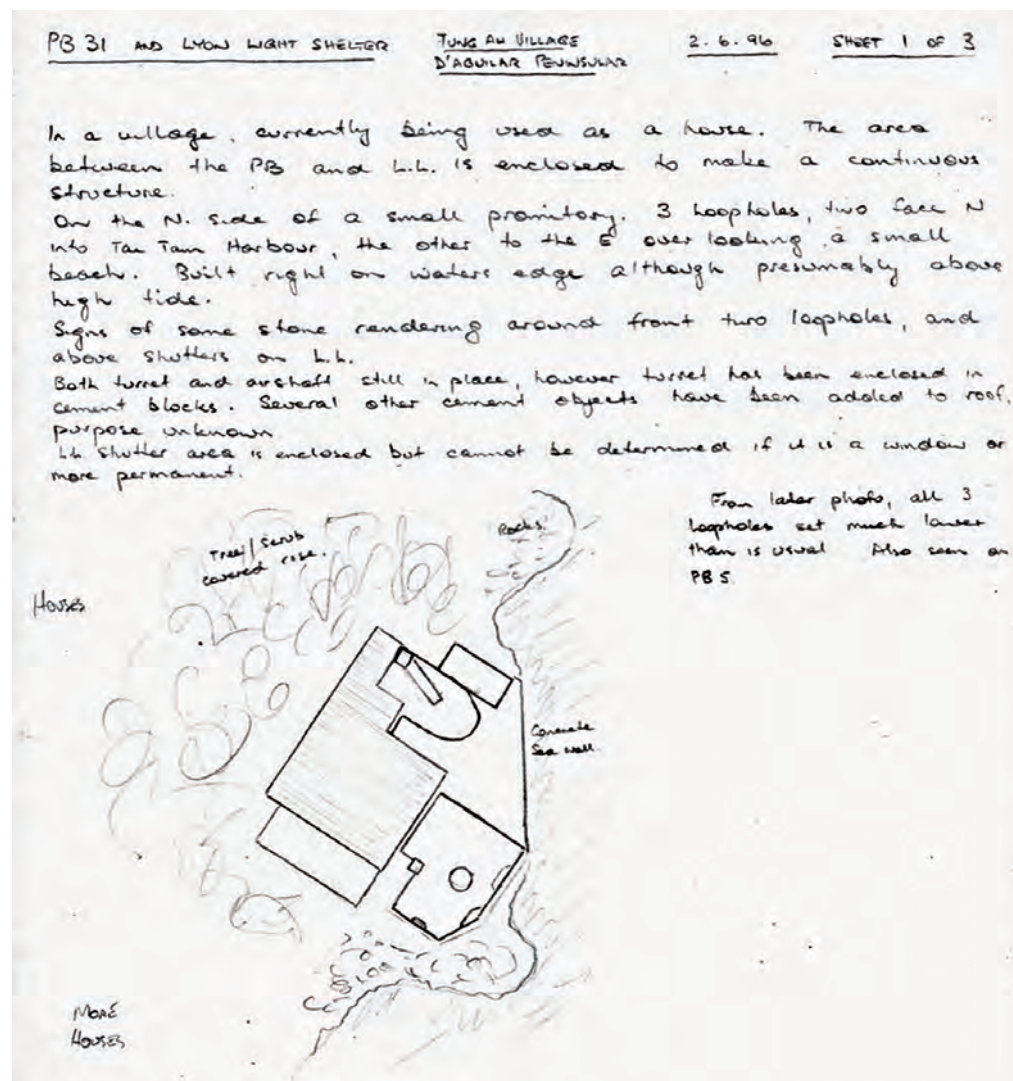 PB 31 AND LYON LIGHT SHELTER
TUNG AH VILLAGE
D'AGUILAR PENINSULAR
2.6.96
SHEET 1 OF 3
In a village, currently being used as a house. The area
between the PB and L.L. is enclosed to make a continuous
structure.
On the N. side of a small promitory. 3 loopholes, two face N
into Tai Tam Harbour, the other to the E overlooking a small
beach. Built right on waters edge although presumably above
high tide.
Signs of some stone rendering around front two loopholes, and
above shutters on L.L.
Both turret and airshaft still in place, however turret has been enclosed in
cement blocks. Several other cement objects have been added to roof,
purpose unknown
L.L. shutter area is enclosed but cannot be determined if it is a window or
more permanent.
From later photo, all 3
loopholes set much lower
than is usual Also seen on
PB 5
Rocks
Tree/scrub
covered rise.
HOUSES
Concrete
Sea wall.
MORE
HOUSES